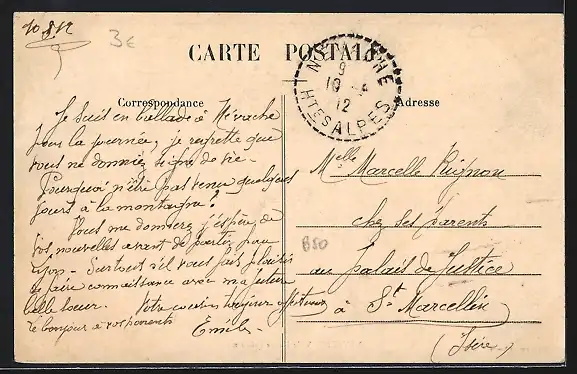 10 8 12
3€
CARTE POSTALE
NÉVACHE
9
10 - 8
12
HTES ALPES
Correspondance
Adresse
Je suis en ballade à Névache
pour la journée, je regrette que
vous ne donniez signe de vie -
Pourquoi n'être pas venu quelques
jours à la montagne?
Vous me donnerez j'espère de
vos nouvelles avant de partir pour
Lyon - Surtout s'il vous fait plaisir
de faire connaissance avec ma future
belle soeur. Votre cousin toujours affectueux
Le bonjour à vos parents Emile -
Melle Marcelle
chez ses parents
B50
au palais de Justice
à St Marcellin
(Isère)